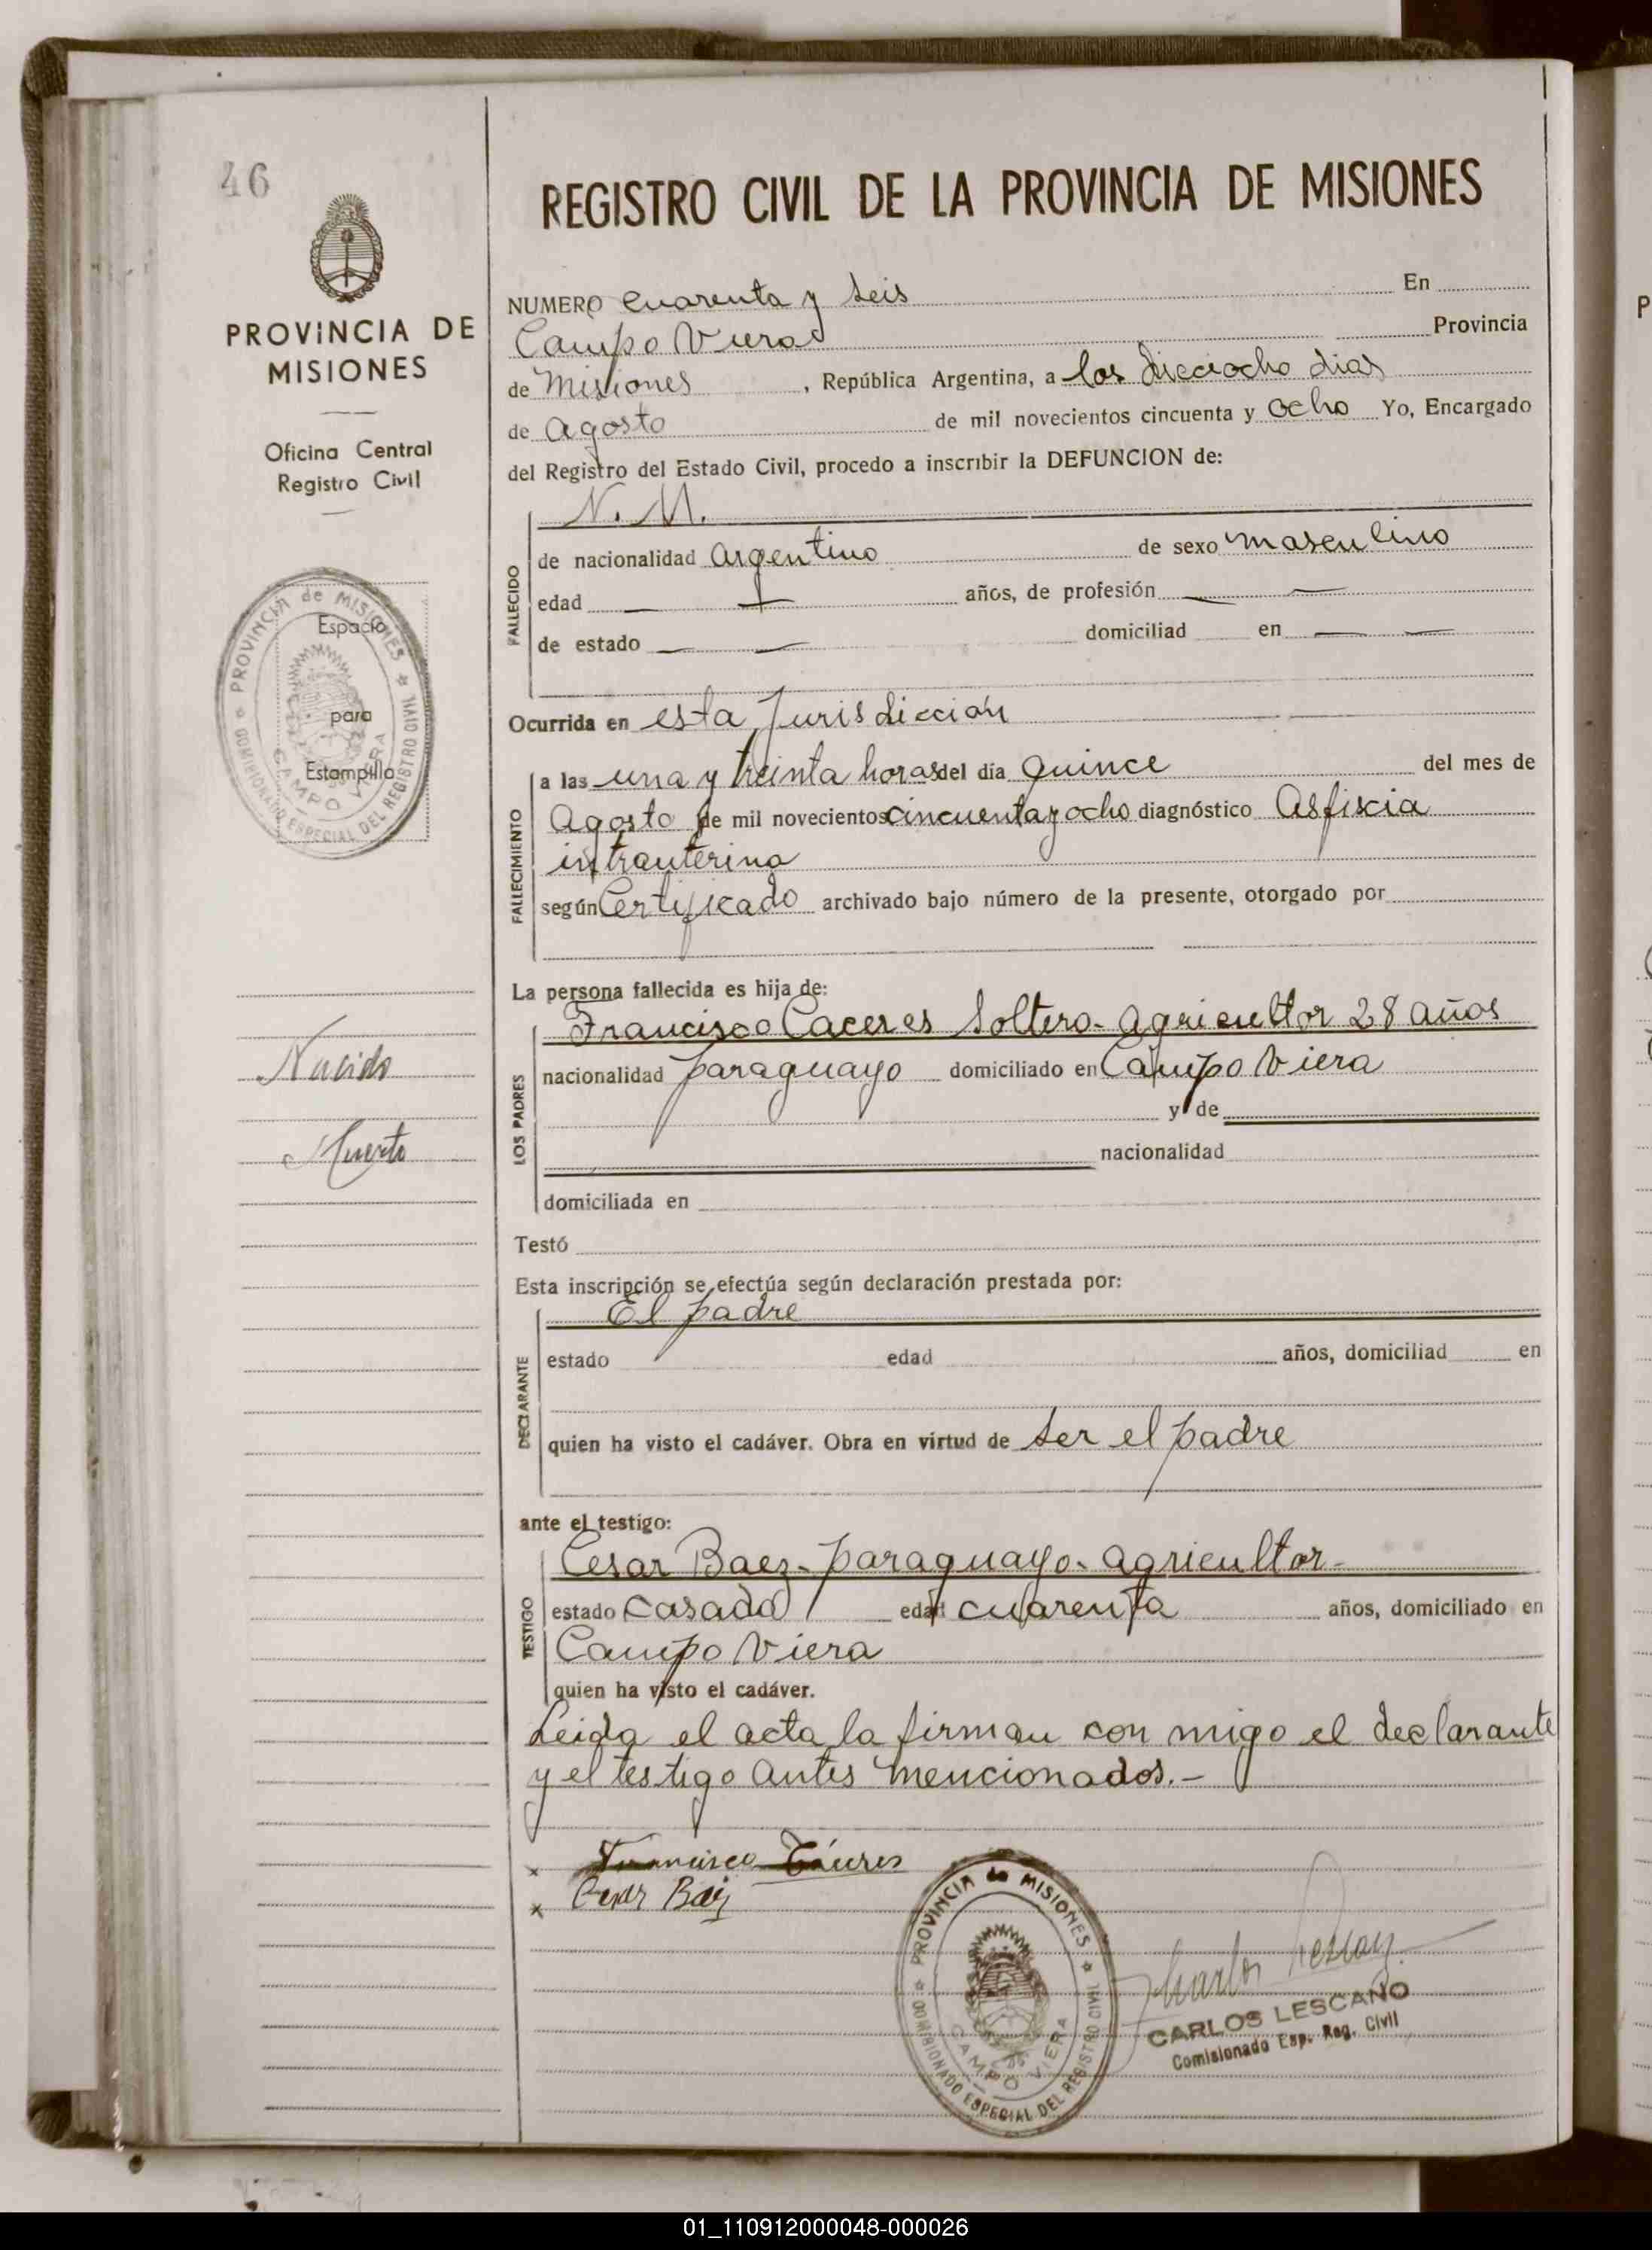 46
PROVINCIA DE
MISIONES
Oficina Central
Registro Civil
PROVINCIA de MISIONES
COMISIONADO ESPECIAL DEL REGISTRO CIVIL
CAMPO VIERA
Espacio
para
Estampilla
Nacido
Muerto
REGISTRO CIVIL DE LA PROVINCIA DE MISIONES
NUMERO cuarenta y seis En
Campo Viera Provincia
de Misiones, República Argentina, a los dieciocho dias
de Agosto de mil novecientos cincuenta y ocho Yo, Encargado
del Registro del Estado Civil, procedo a inscribir la DEFUNCION de:
N. M.
FALLECIDO
de nacionalidad argentino de sexo masculino
edad — — años, de profesión — —
de estado — — domiciliad en — —
Ocurrida en esta Jurisdiccion
FALLECIMIENTO
a las una y treinta horas del día quince del mes de
Agosto de mil novecientos cincuenta y ocho diagnóstico Asfixia
intrauterina
según Certificado archivado bajo número de la presente, otorgado por
La persona fallecida es hija de:
LOS PADRES
Francisco Caceres Soltero - agricultor 28 años
nacionalidad paraguayo domiciliado en Campo Viera
y de
nacionalidad
domiciliada en
Testó
Esta inscripción se efectúa según declaración prestada por:
DECLARANTE
El padre
estado edad años, domiciliad en
quien ha visto el cadáver. Obra en virtud de ser el padre
ante el testigo:
TESTIGO
Cesar Baez - paraguayo - agricultor -
estado casado edad cuarenta años, domiciliado en
Campo Viera
quien ha visto el cadáver.
Leida el acta la firman con migo el declarante
y el testigo antes mencionados. -
x Francisco Cáceres
x Cesar Baez
PROVINCIA de MISIONES
COMISIONADO ESPECIAL DEL REGISTRO CIVIL
CAMPO VIERA
Carlos Lescano
CARLOS LESCANO
Comisionado Esp. Reg. Civil
P
01_110912000048-000026